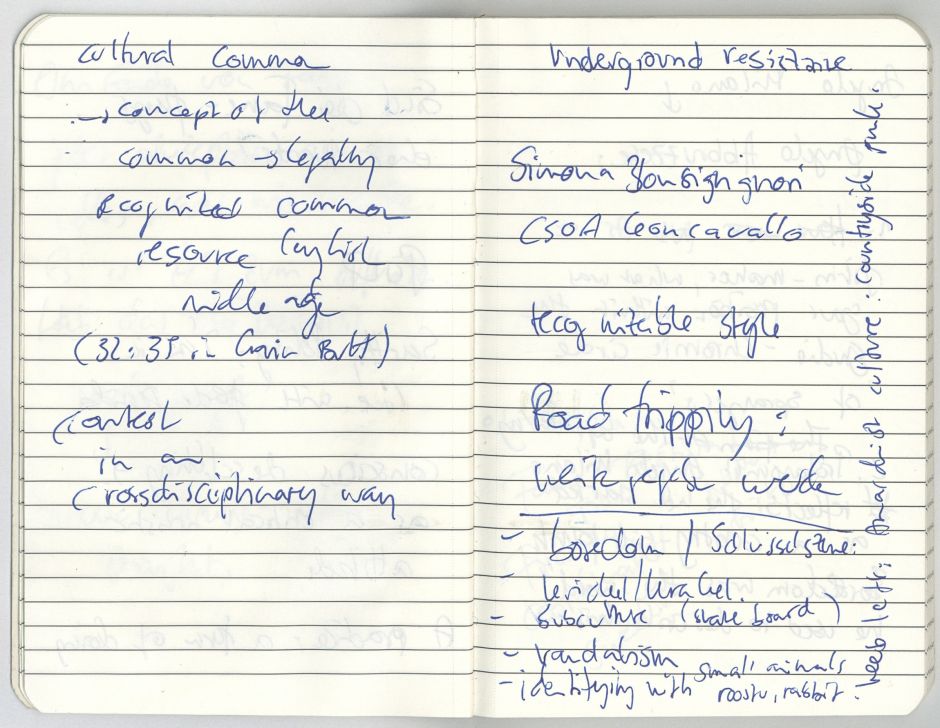 cultural comma
→ concept of the
common → legally
recognized common
resource English
middle age
(32:35 in Gavin Butt)
contest
in an
crossdisciplinary way
Underground resistance
Simona Bonsignori
CSOA Leoncavallo
recognizable style
Road trippily:
white people
- boredom / Schlüsselszene:
- subculture (skateboard)
- vandalism
- identifying with small animals
rabbit.
culture: countryside punk.